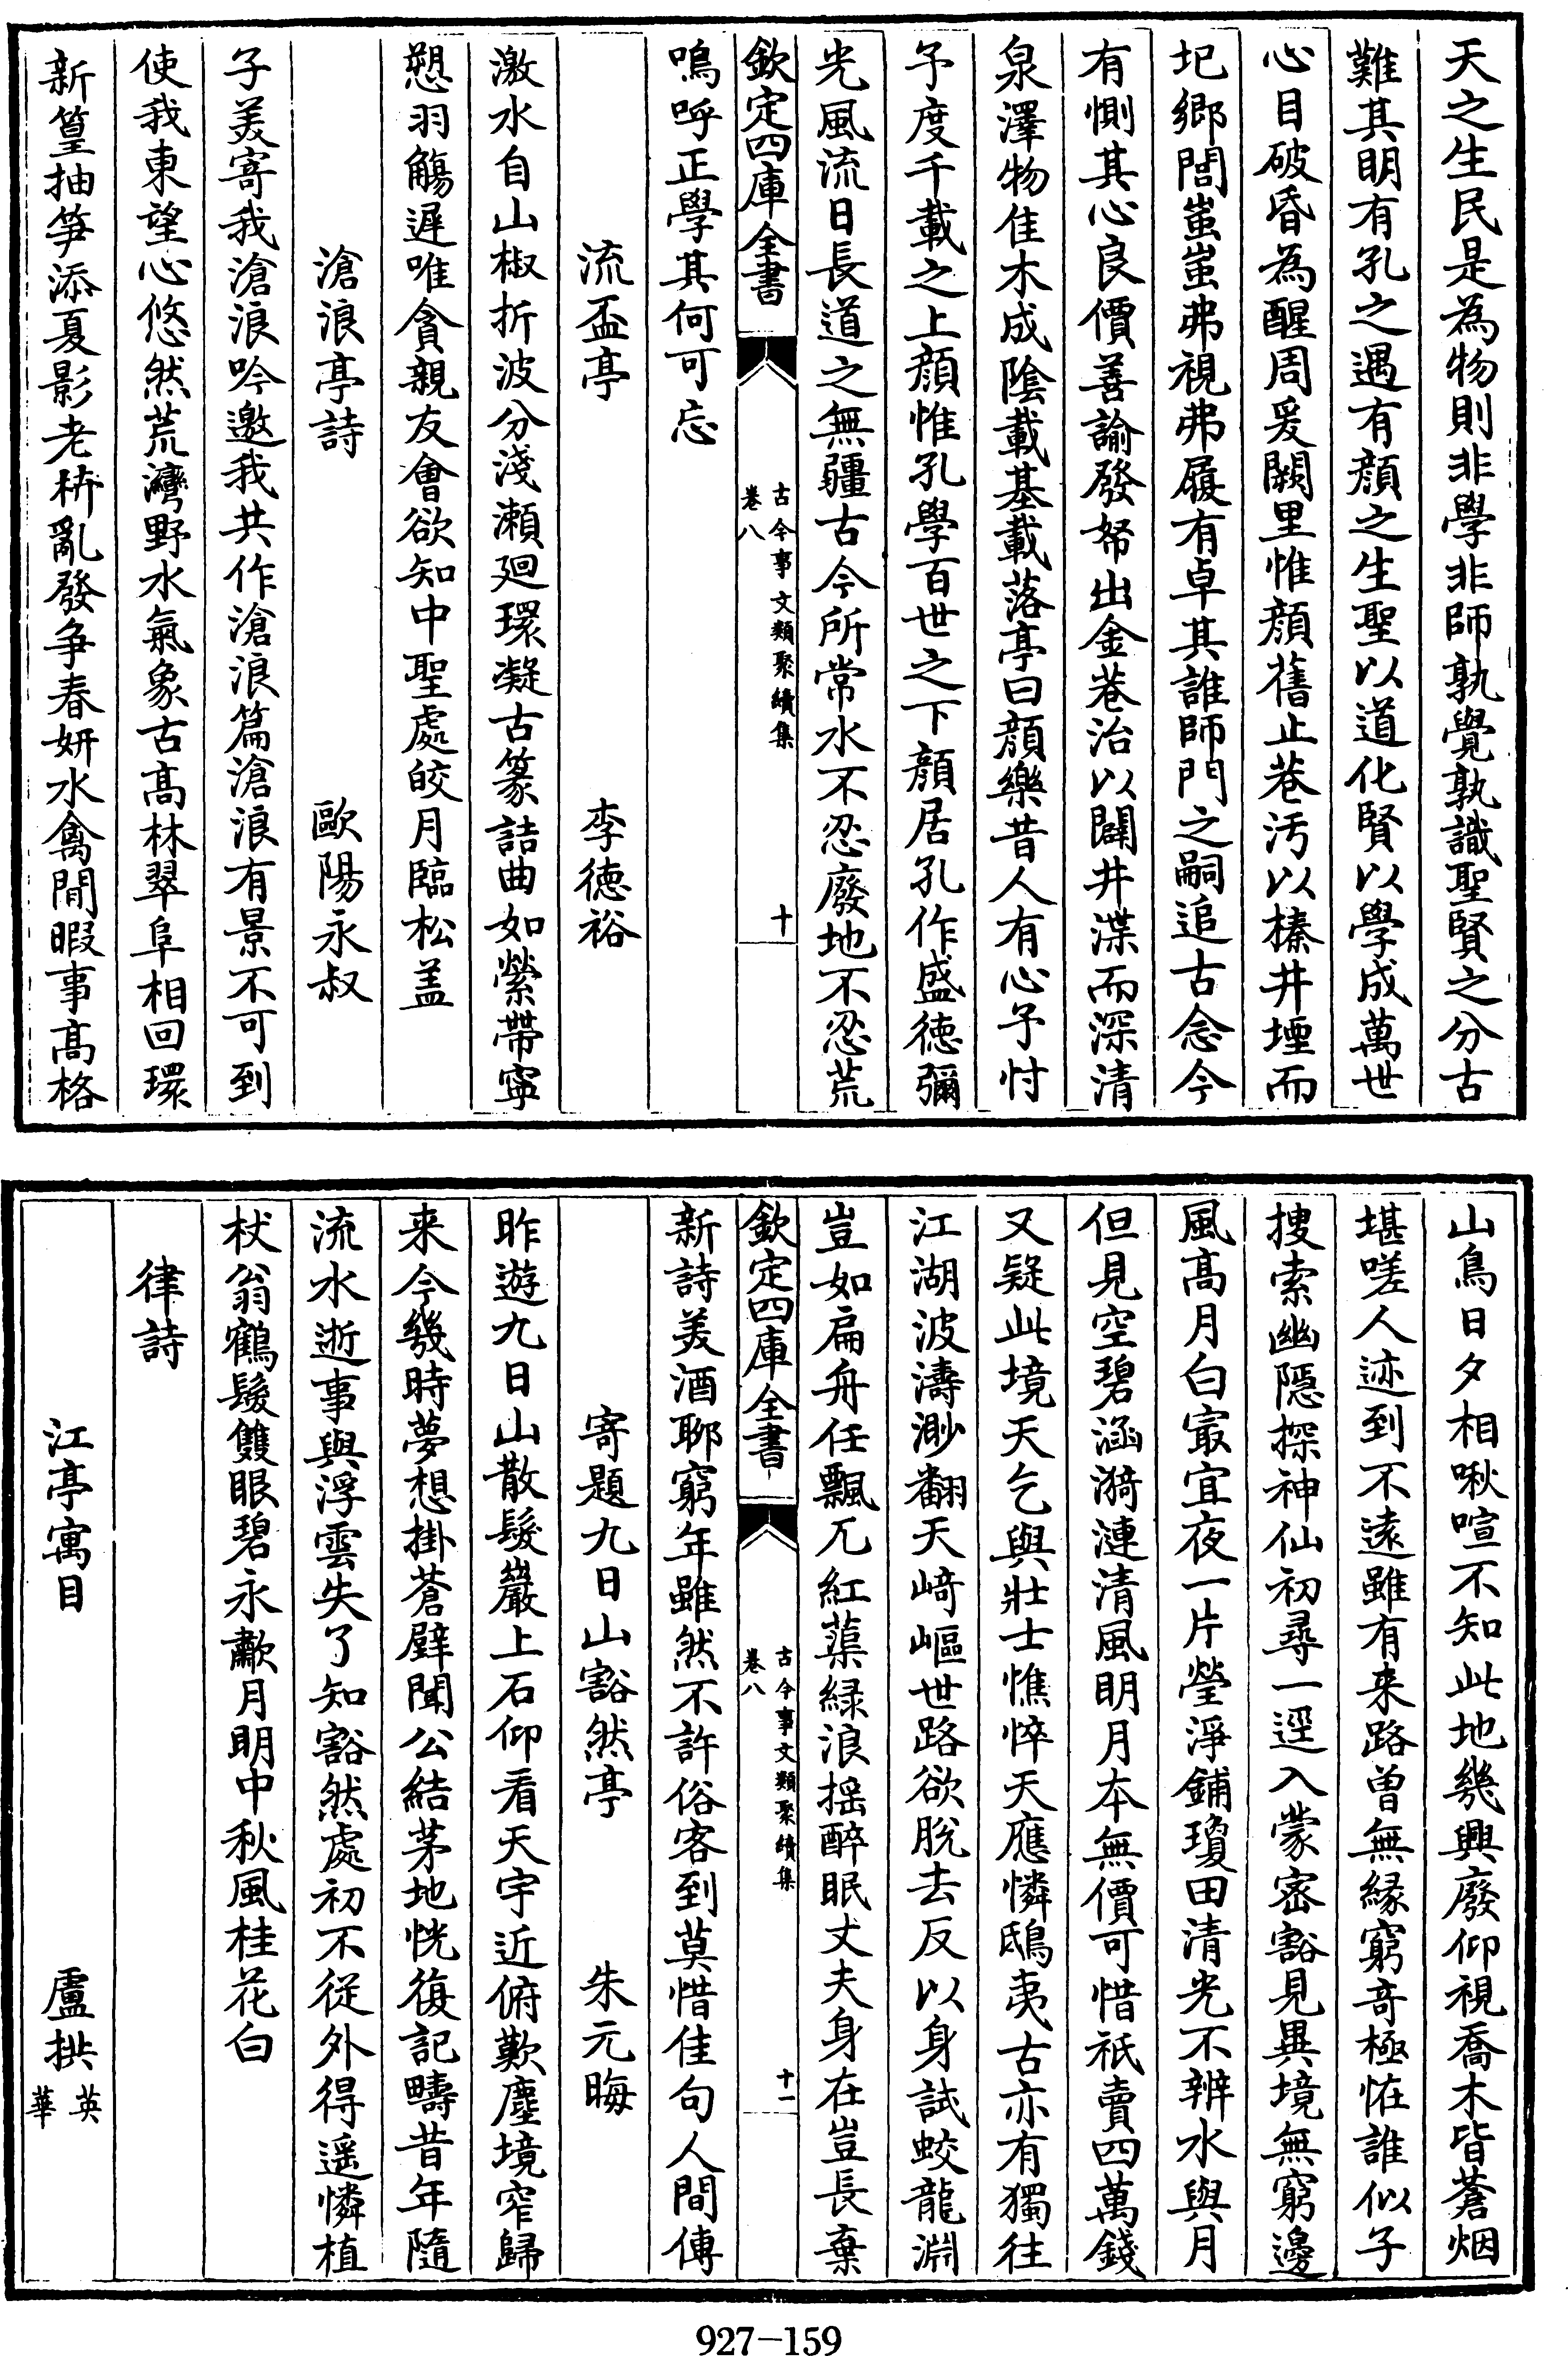 天之生民是為物則非學非師孰覺孰識聖賢之分古
難其明有孔之遇有顔之生聖以道化賢以學成萬世
心目破昏為醒周爰闕里惟顔舊止巷汚以榛井堙而
圮鄉閭蚩蚩弗視弗履有卓其誰師門之嗣追古念今
有惻其心良價善諭發帑出金巷治以闢井渫而深清
泉澤物佳木成隂載基載落亭曰顔樂昔人有心予忖
予度千載之上顔惟孔學百世之下顔居孔作盛徳彌
光風流日長道之無疆古今所常水不忍廢地不忍荒
欽定四庫全書
古今事文類聚續集
卷八
十
嗚呼正學其何可忘
流盃亭 李徳裕
激水自山椒折波分淺瀬廻環凝古篆詰曲如縈帶寧
愬羽觴遲唯貪親友會欲知中聖處皎月臨松盖
滄浪亭詩 歐陽永叔
子美寄我滄浪吟邀我共作滄浪篇滄浪有景不可到
使我東望心悠然荒灣野水氣象古高林翠阜相回環
新篁抽笋添夏影老枿亂發争春妍水禽閒暇事高格
山鳥日夕相啾喧不知此地幾興廢仰視喬木皆蒼烟
堪嗟人迹到不遠雖有来路曽無緣窮竒極怪誰似子
捜索幽隠探神仙初尋一逕入蒙宻豁見異境無窮邊
風高月白㝡宜夜一片瑩淨鋪瓊田清光不辨水與月
但見空碧涵漪漣清風明月本無價可惜祇賣四萬錢
又疑此境天乞與壯士憔悴天應憐鴟夷古亦有獨往
江湖波濤渺翻天崎嶇世路欲脱去反以身試蛟龍淵
豈如扁舟任飄兀紅蕖緑浪揺醉眠丈夫身在豈長棄
欽定四庫全書
古今事文類聚續集
卷八
十一
新詩美酒聊窮年雖然不許俗客到莫惜佳句人間傳
寄題九日山豁然亭 朱元晦
昨遊九日山散髮巖上石仰看天宇近俯歎塵境窄歸
来今幾時夢想掛蒼壁聞公結茅地恍復記疇昔年隨
流水逝事與浮雲失了知豁然處初不從外得遥憐植
杖翁鶴髮雙眼碧永歗月明中秋風桂花白
律詩
江亭寓目 盧拱 英華
927-159